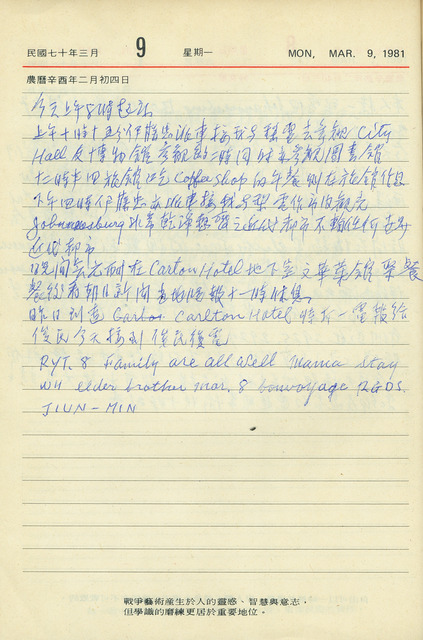 民國七十年三月 9 星期一 MON, MAR. 9, 1981
農曆辛酉年二月初四日
今天上午8時起床
上午十時十五分伊勝忠派車接我與 雲去參觀 City
Hall 及博物館參觀 時間 未參觀圖書館
十二時半回旅館 吃 Coffee shop 的午餐 則在旅館休息
下午四時伊勝忠 派車接我與 雲作市內觀光
Johannesburg 非常乾淨整齊之近代都市不輸任何世界
近代都市
晚間 在 Carton Hotel 地下室文華菜館聚餐
餐後看朝日新聞 晚報十一時休息
昨日到達 Carlton Hotel 時 一電報給
俊民今天接到俊民復電
RYT. 8 Family are all well Mama stay
wit elder brother mar. 8 bonvoyage RGDS.
JIUN-MIN
戰爭藝術産生於人的靈感、智慧與意志，
但學識的磨練更居於重要地位。